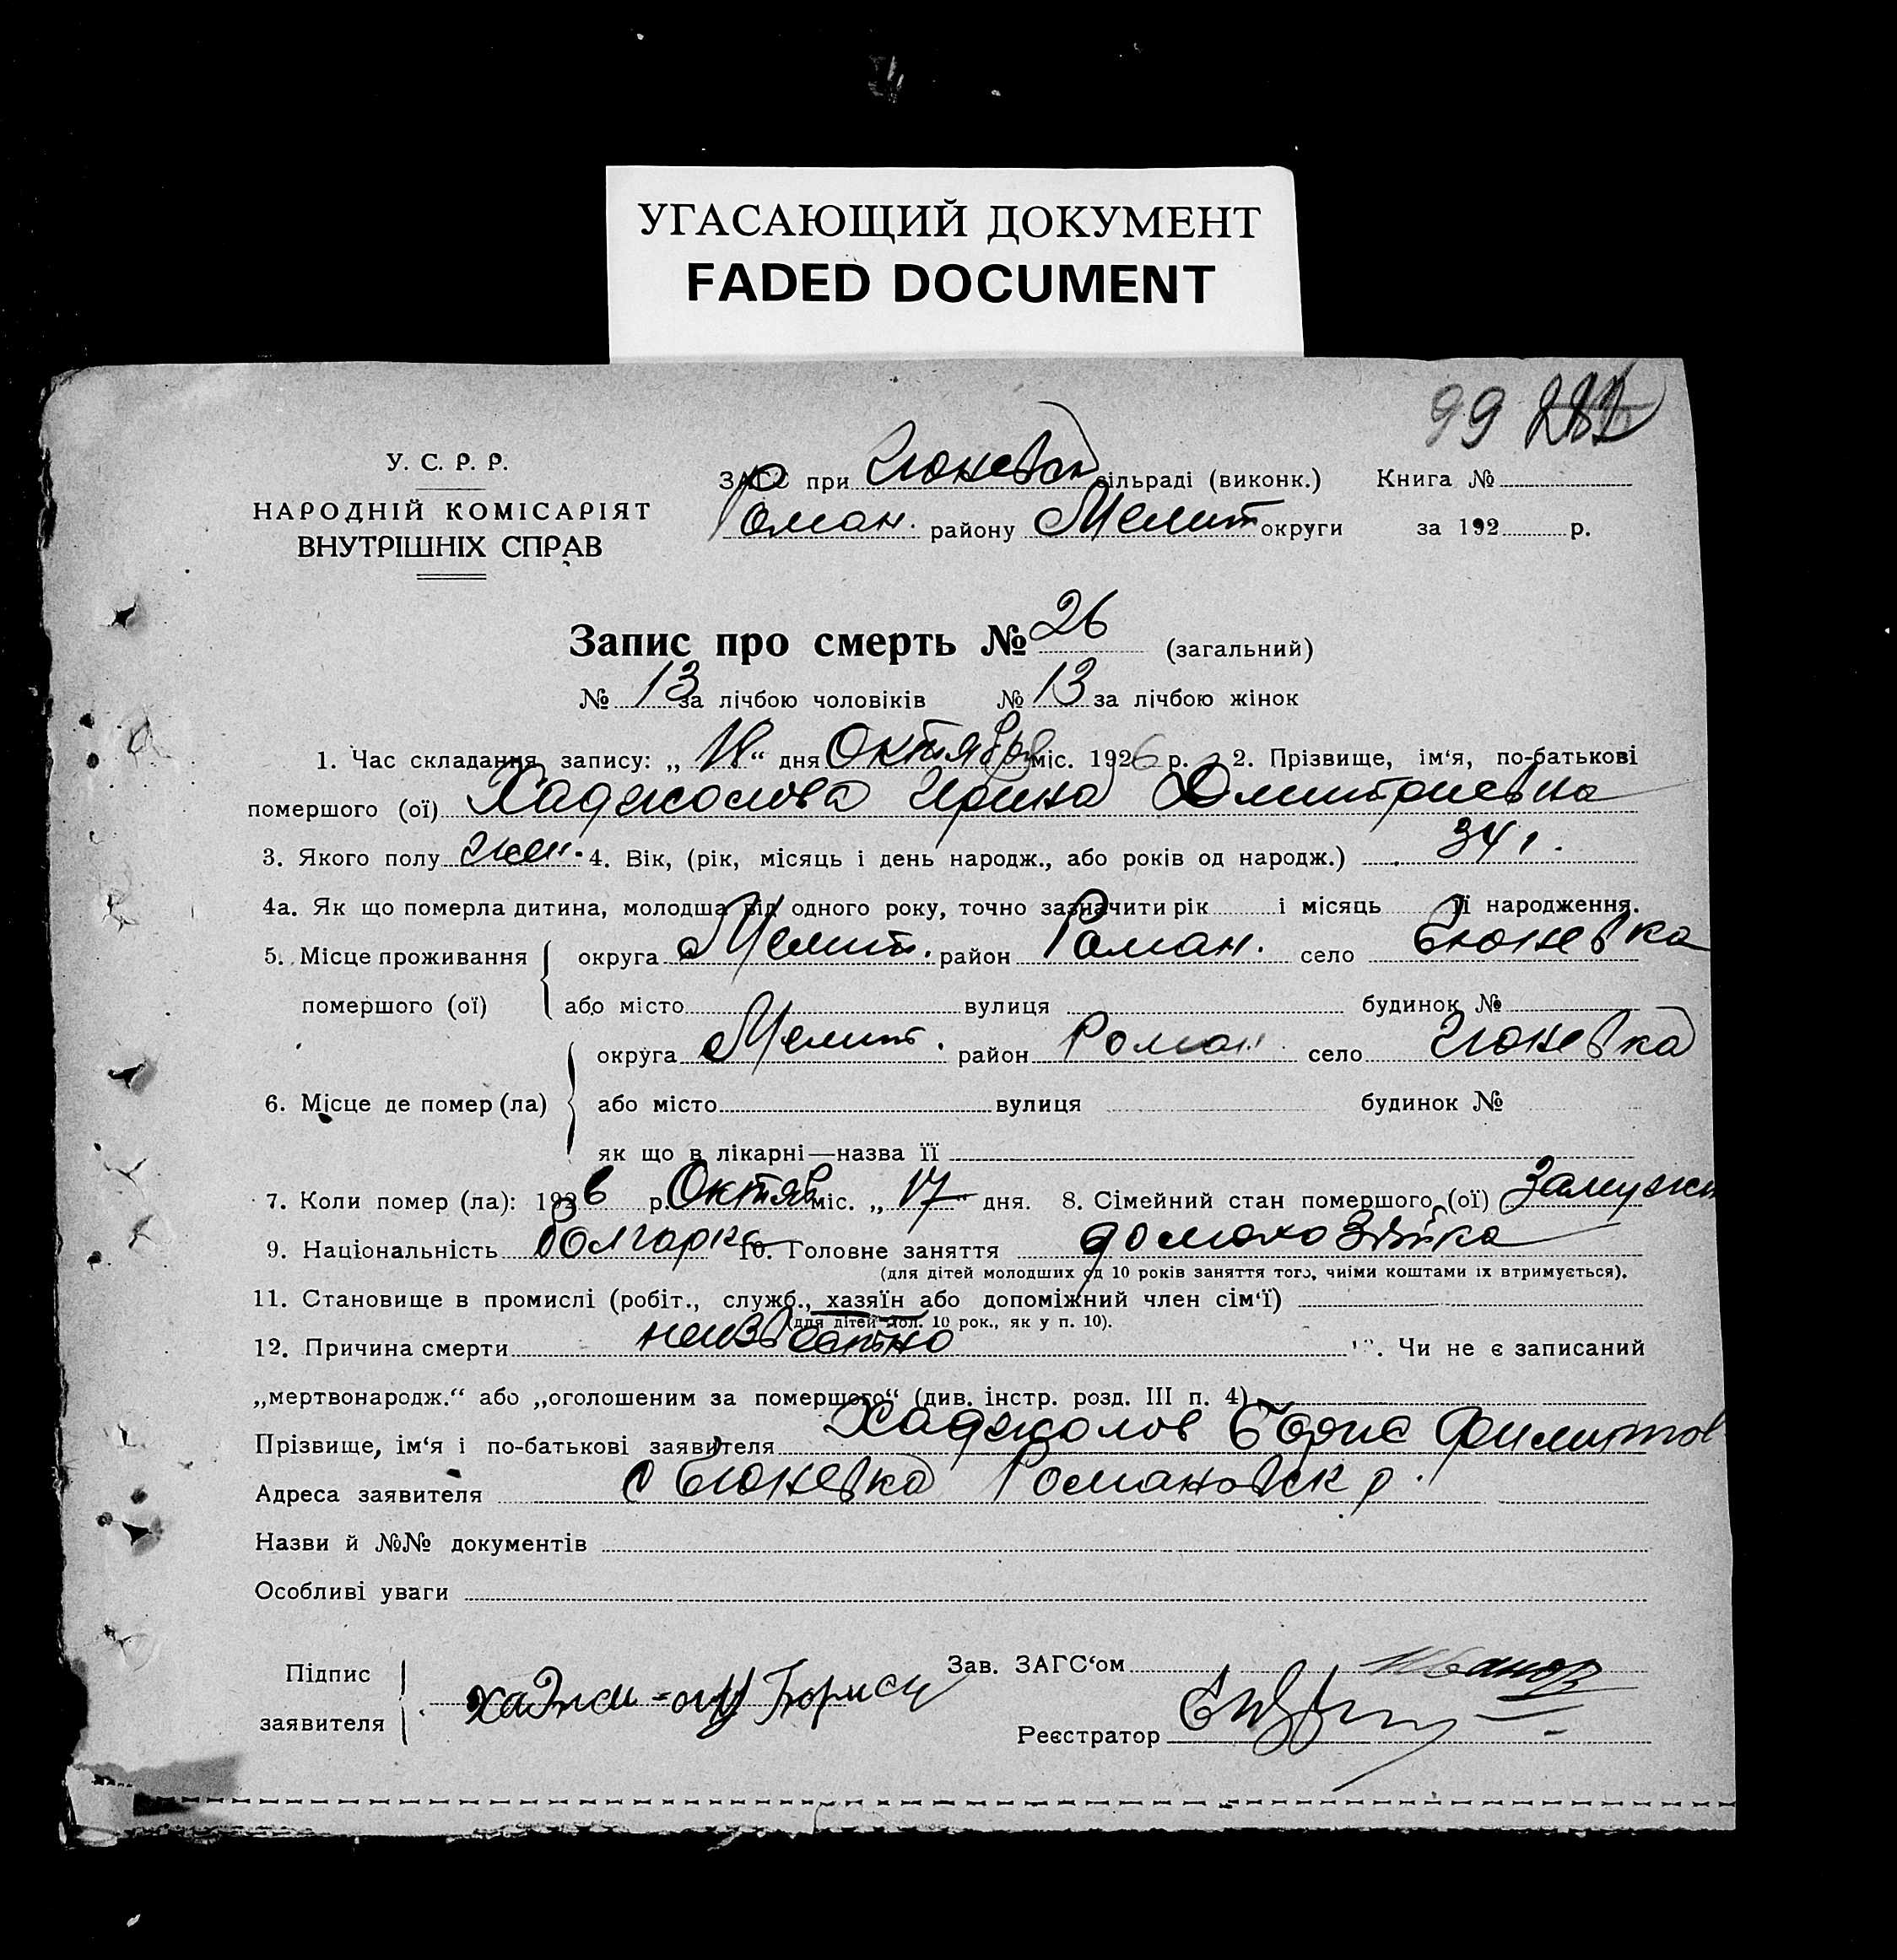 УГАСАЮЩИЙ ДОКУМЕНТ
FADED DOCUMENT
99 282
У. С. Р. Р.
НАРОДНІЙ КОМІСАРІЯТ
ВНУТРІШНІХ СПРАВ
ЗАГС при сільраді (виконк.) Книга №
Роман. району Мелит округи за 192 р.
Запис про смерть № 26 (загальний)
№ 13 за лічбою чоловіків № 13 за лічбою жінок
1. Час складання запису: „18“ дня Октября міс. 1926 р. 2. Прізвище, ім'я, по-батькові
помершого (ої) Хаджолова Ирина Дмитриевна
3. Якого полу жен. 4. Вік, (рік, місяць і день народж., або років од народж.) 34 г.
4а. Як що померла дитина, молодша від одного року, точно зазначити рік і місяць її народження.
5. Місце проживання округа Мелит. район Роман. село Гюневка
помершого (ої) або місто вулиця будинок №
округа Мелит. район Роман. село Гюневка
6. Місце де помер (ла) або місто вулиця будинок №
як що в лікарні—назва її
7. Коли помер (ла): 1926 р. Октяб міс. „17“ дня. 8. Сімейний стан помершого (ої) Замужн
9. Національність Болгарка 10. Головне заняття домохозяйка
(для дітей молодших од 10 років заняття того, чиїми коштами їх втримується).
11. Становище в промислі (робіт., служб., хазяїн або допоміжний член сім'ї)
(для дітей мол. 10 рок., як у п. 10).
12. Причина смерти неизвестно . Чи не є записаний
„мертвонародж.“ або „оголошеним за помершого“ (див. інстр. розд. III п. 4)
Прізвище, ім'я і по-батькові заявителя Хаджолов Борис Филиппов
Адреса заявителя с Гюневка Романовск р.
Назви й №№ документів
Особливі уваги
Підпис
Зав. ЗАГС'ом Иванов
заявителя
Реєстратор